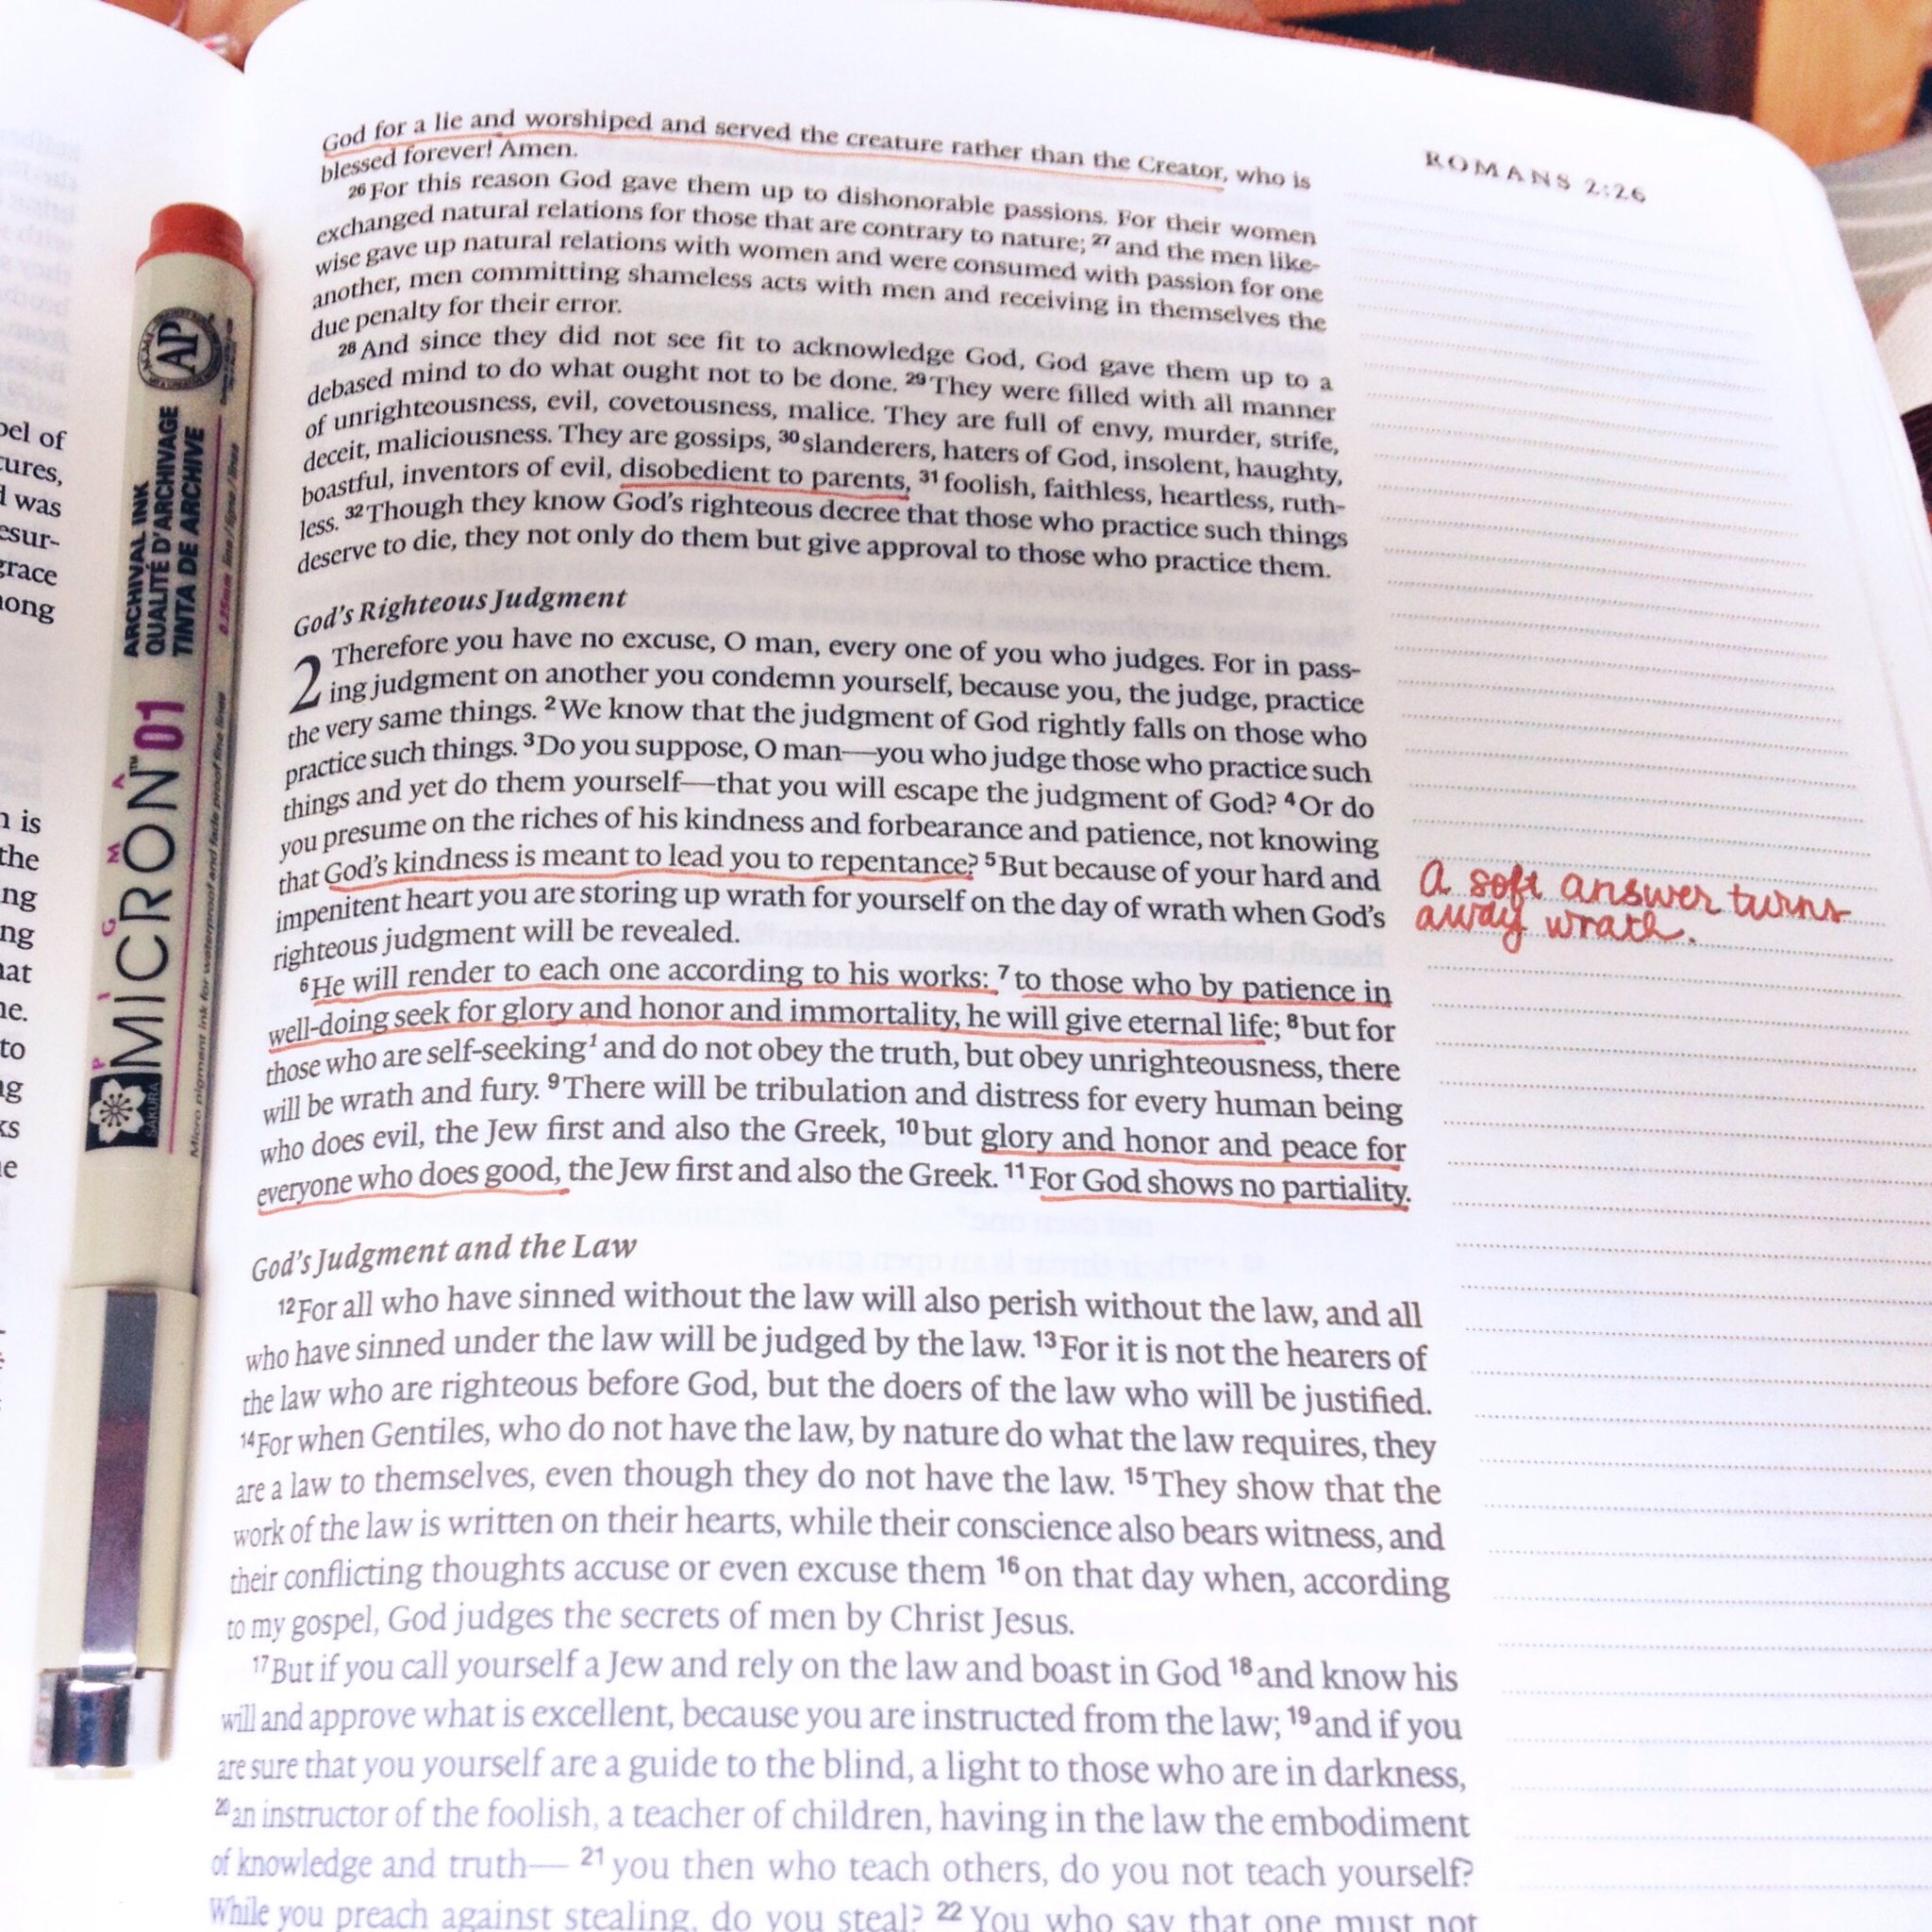 God for a lie and worshiped and served the creature rather than the Creator, who is
blessed forever! Amen.
26 For this reason God gave them up to dishonorable passions. For their women
exchanged natural relations for those that are contrary to nature; 27 and the men like-
wise gave up natural relations with women and were consumed with passion for one
another, men committing shameless acts with men and receiving in themselves the
due penalty for their error.
28 And since they did not see fit to acknowledge God, God gave them up to a
debased mind to do what ought not to be done. 29 They were filled with all manner
of unrighteousness, evil, covetousness, malice. They are full of envy, murder, strife,
deceit, maliciousness. They are gossips, 30 slanderers, haters of God, insolent, haughty,
boastful, inventors of evil, disobedient to parents, 31 foolish, faithless, heartless, ruth-
less. 32 Though they know God's righteous decree that those who practice such things
deserve to die, they not only do them but give approval to those who practice them.
God's Righteous Judgment
2 Therefore you have no excuse, O man, every one of you who judges. For in pass-
ing judgment on another you condemn yourself, because you, the judge, practice
the very same things. 2 We know that the judgment of God rightly falls on those who
practice such things. 3 Do you suppose, O man—you who judge those who practice such
things and yet do them yourself—that you will escape the judgment of God? 4 Or do
you presume on the riches of his kindness and forbearance and patience, not knowing
that God's kindness is meant to lead you to repentance? 5 But because of your hard and
impenitent heart you are storing up wrath for yourself on the day of wrath when God's
righteous judgment will be revealed.
6 He will render to each one according to his works: 7 to those who by patience in
well-doing seek for glory and honor and immortality, he will give eternal life; 8 but for
those who are self-seeking¹ and do not obey the truth, but obey unrighteousness, there
will be wrath and fury. 9 There will be tribulation and distress for every human being
who does evil, the Jew first and also the Greek, 10 but glory and honor and peace for
everyone who does good, the Jew first and also the Greek. 11 For God shows no partiality.
God's Judgment and the Law
12 For all who have sinned without the law will also perish without the law, and all
who have sinned under the law will be judged by the law. 13 For it is not the hearers of
the law who are righteous before God, but the doers of the law who will be justified.
14 For when Gentiles, who do not have the law, by nature do what the law requires, they
are a law to themselves, even though they do not have the law. 15 They show that the
work of the law is written on their hearts, while their conscience also bears witness, and
their conflicting thoughts accuse or even excuse them 16 on that day when, according
to my gospel, God judges the secrets of men by Christ Jesus.
17 But if you call yourself a Jew and rely on the law and boast in God 18 and know his
will and approve what is excellent, because you are instructed from the law; 19 and if you
are sure that you yourself are a guide to the blind, a light to those who are in darkness,
20 an instructor of the foolish, a teacher of children, having in the law the embodiment
of knowledge and truth— 21 you then who teach others, do you not teach yourself?
While you preach against stealing, do you steal? 22 You who say that one must not
ROMANS 2:26
A soft answer turns
away wrath.
AP
ARCHIVAL INK
QUALITÉ D'ARCHIVAGE
TINTA DE ARCHIVE
PIGMA
MICRON™ 01
SAKURA
Micro pigment ink for waterproof and fade proof fine lines
pel of
tures,
d was
esur-
grace
nong
n is
the
ng
ng
hat
ne.
to
ng
ks